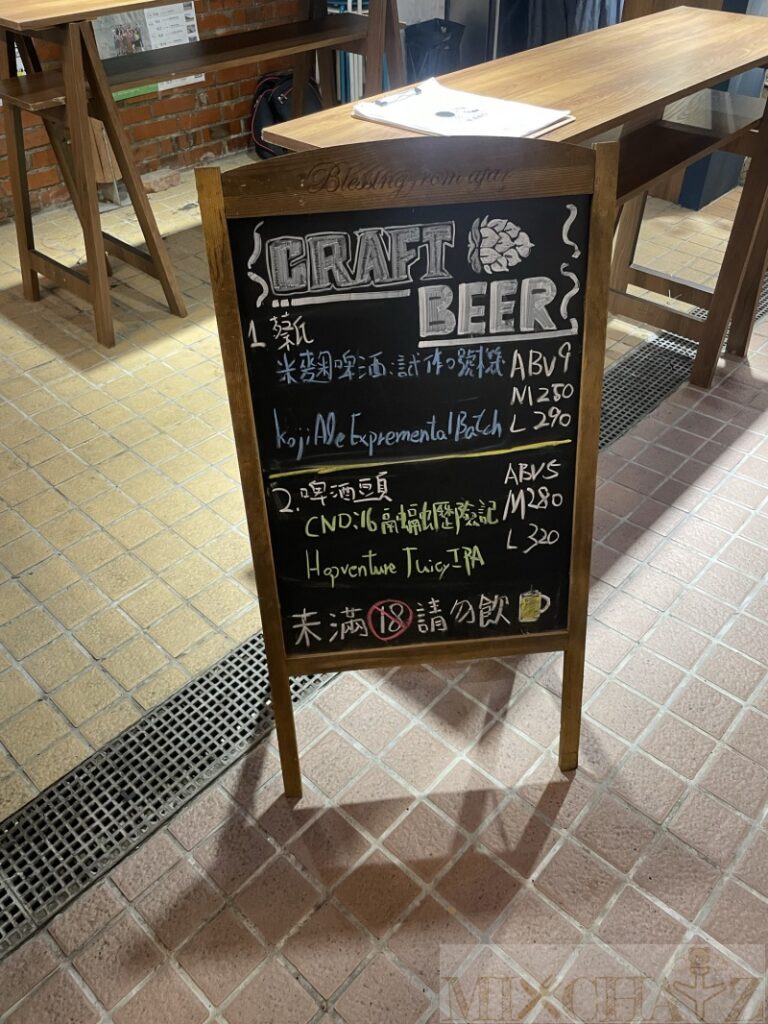 Blessing from afar
CRAFT
BEER
1. 蔡氏
米麴啤酒:試作0號機 ABV9
M 250
Koji Ale Expremental Batch L 290
2. 啤酒頭 ABV5
CND:16 蝙蝠歷險記 M280
L 320
Hopventure Juicy IPA
未滿18請勿飲
MIXCHAYZ